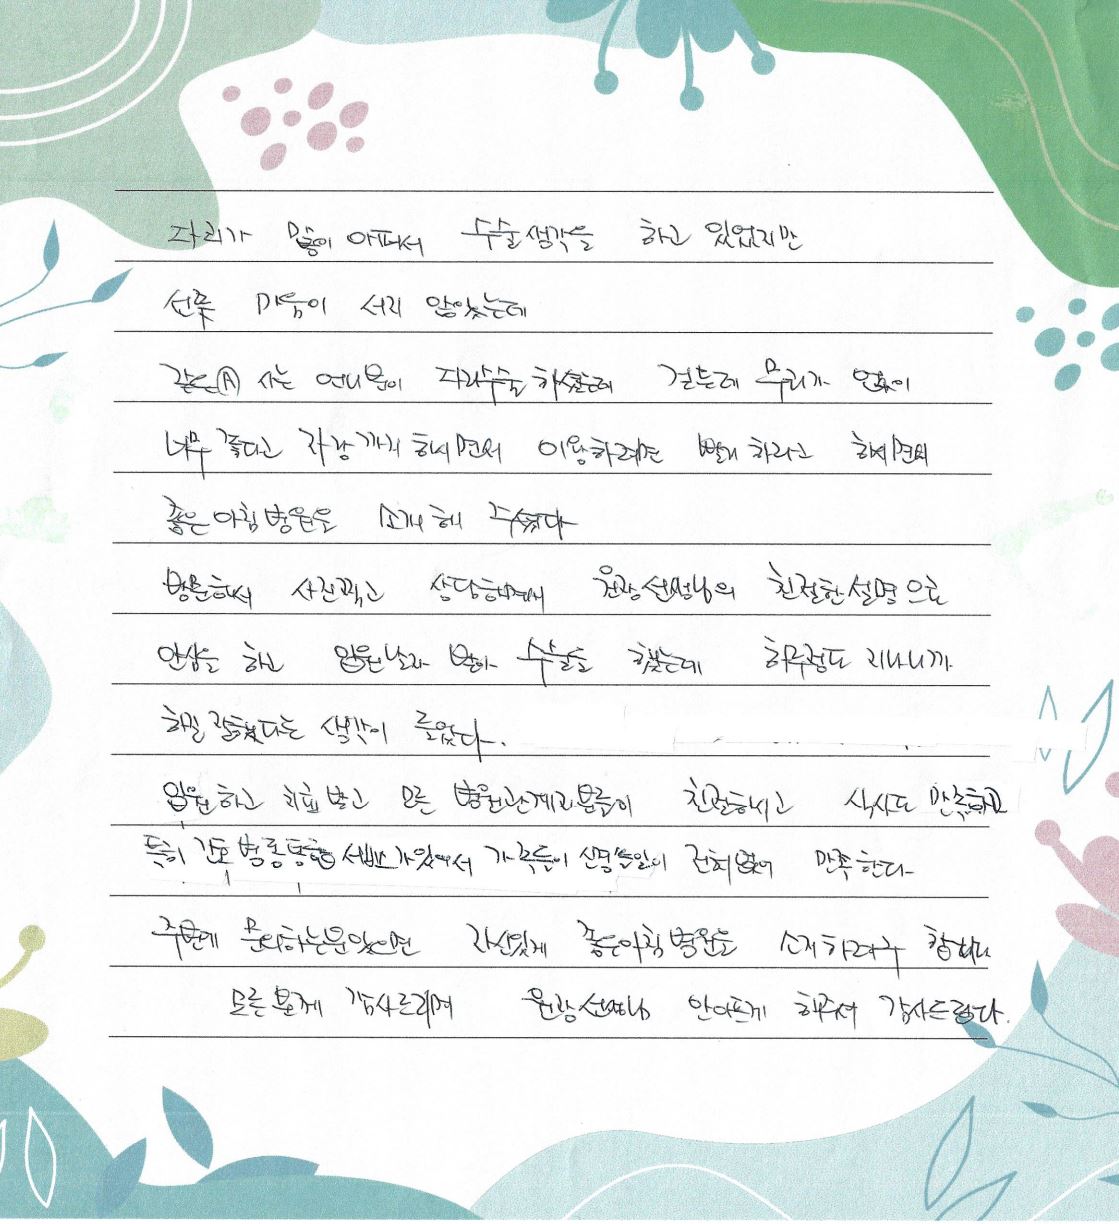 다리가 많이 아파서 수술생각을 하고 있었지만
선뜻 마음이 서지 않았는데
같은Ⓐ 사는 언니분이 다리수술 하셨는데 걷는데 무리가 없이
너무 좋다고 자랑까지 하시면서 이왕하려면 빨리 하라고 하시면서
좋은아침병원을 소개해 주셨다
방문해서 사진찍고 상담하면서 원장선생님의 친절한설명으로
안심을 하고 입원날자 받아 수술을 했는데 하루정도 지나니까
정말 잘했다는 생각이 들었다.
입원하고 치료 받고 모든 병원관계자분들이 친절하시고 식사도 만족하고
특히 간호병동통합 서비스가있어서 가족들이 신경쓸일이 전혀없어 만족한다
주변에 문의하는분있으면 자신있게 좋은아침병원을 소개하려구 합니다
모든분께 감사드리며 원장선생님 안아프게 해주셔 감사드립다.